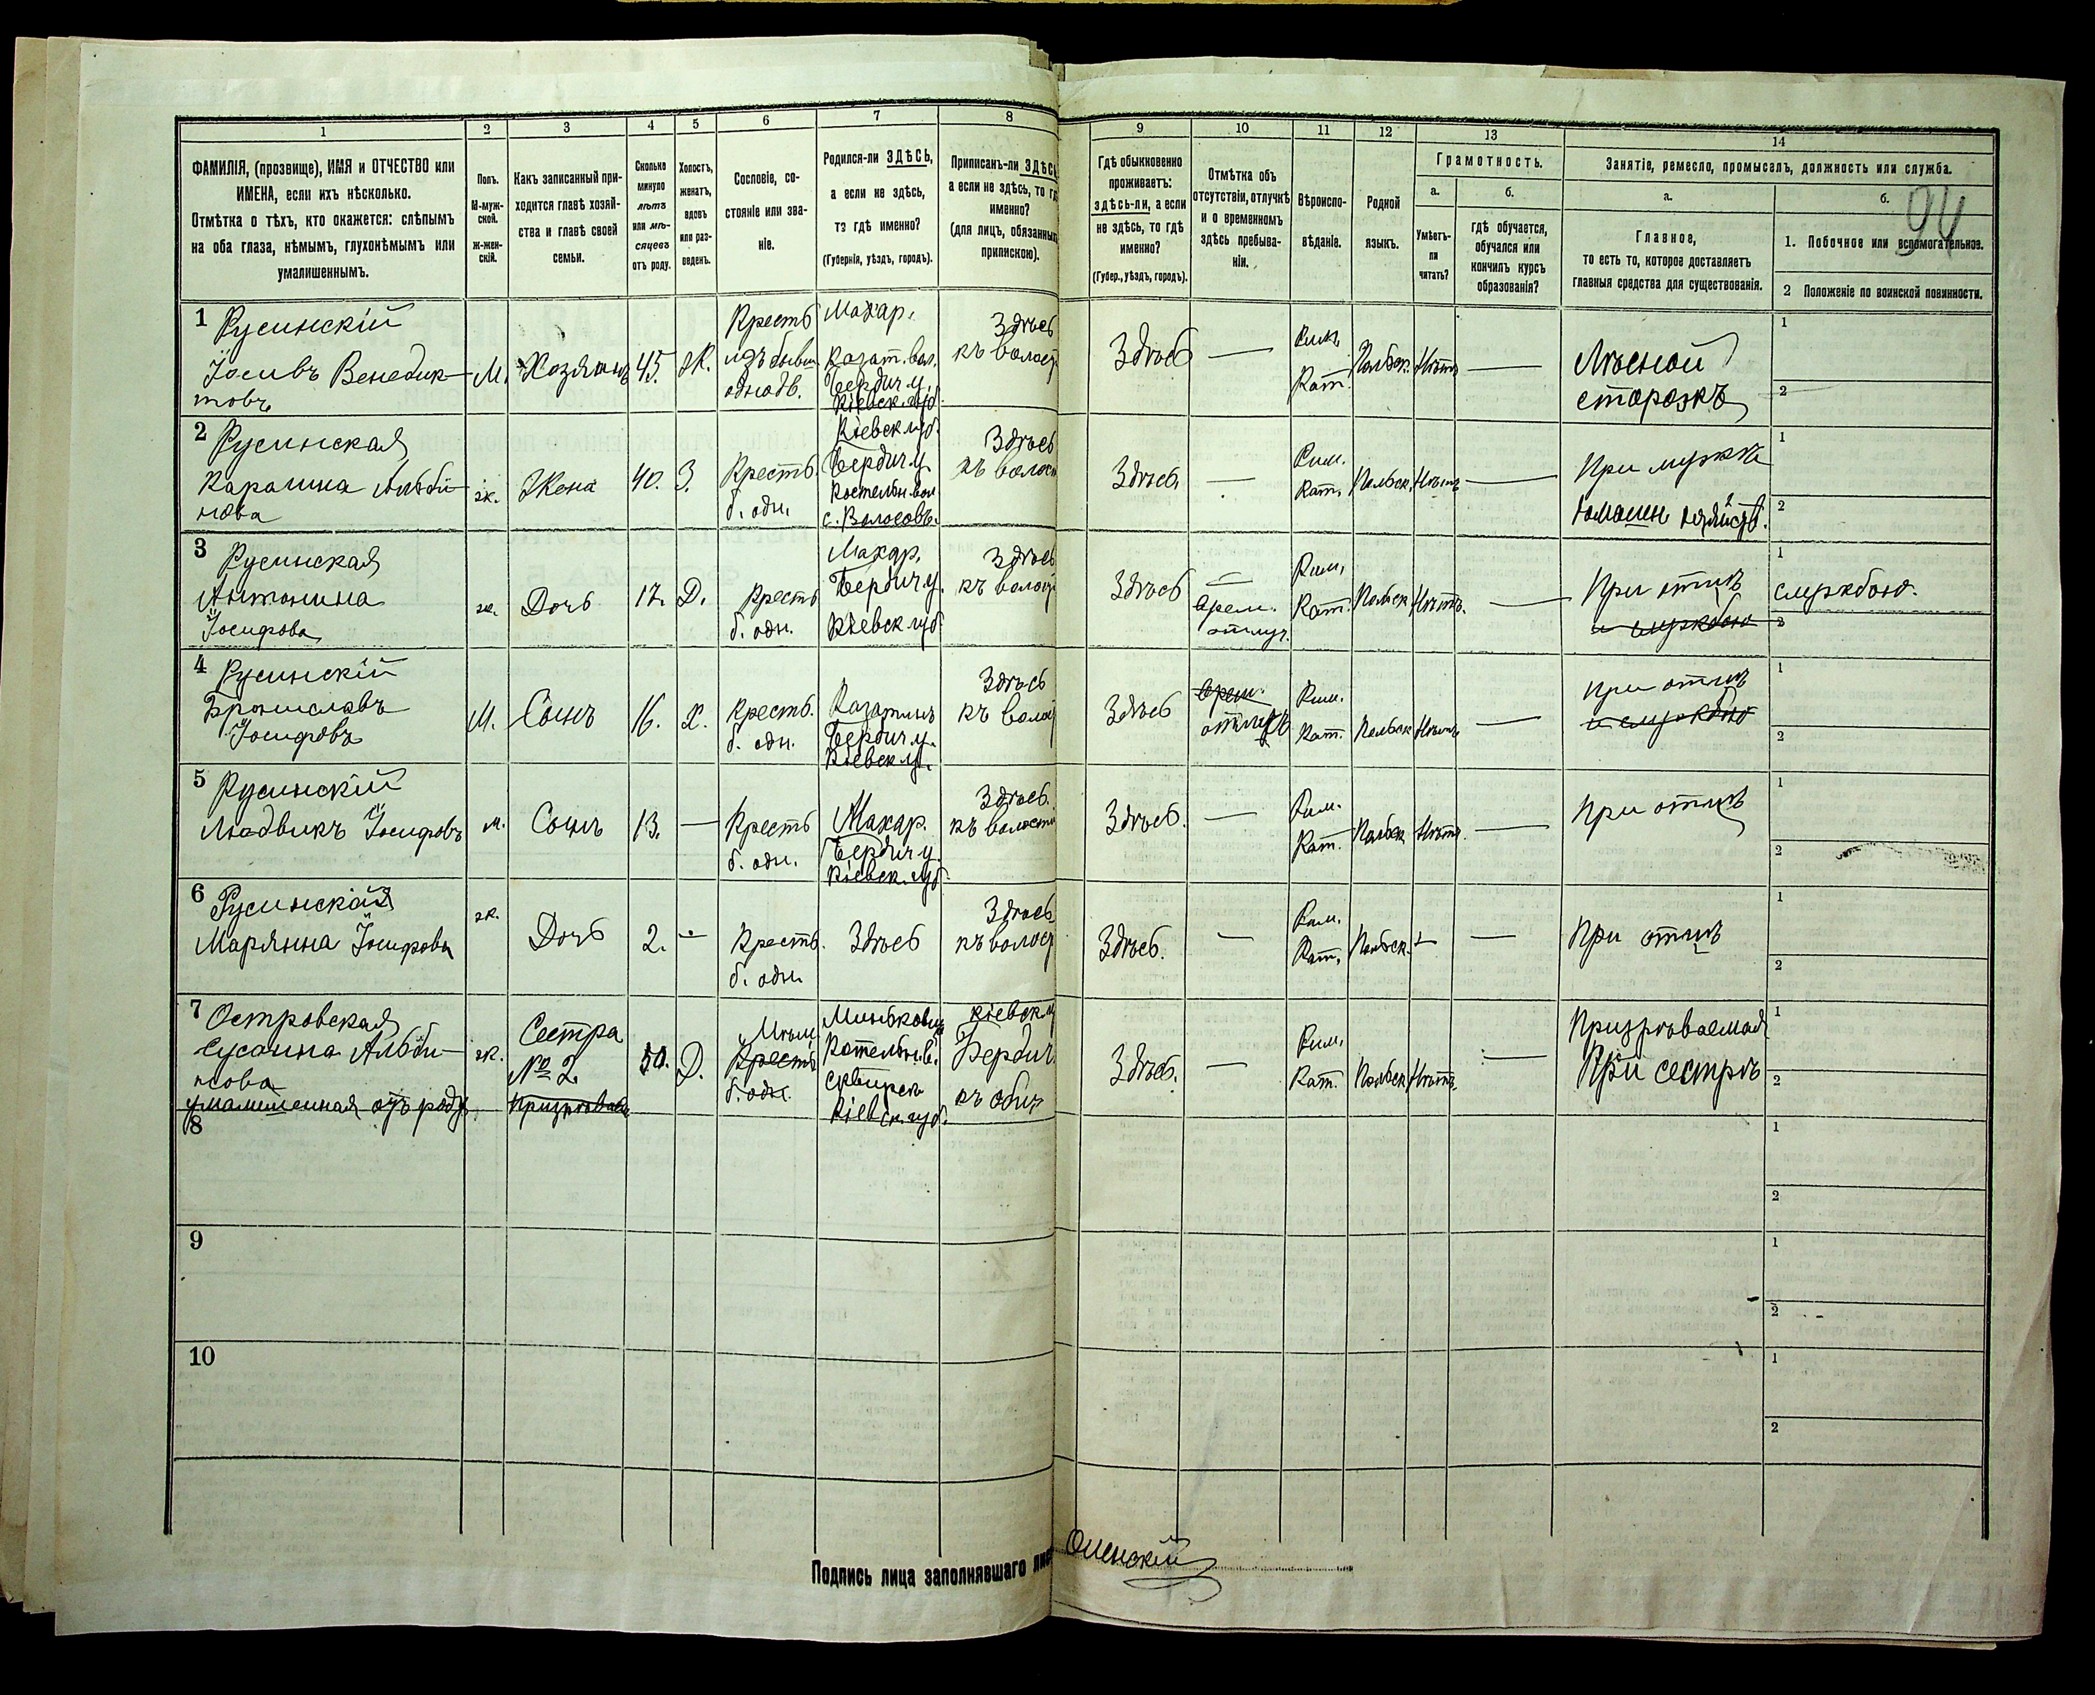 1
2
3
4
5
6
7
8
ФАМИЛІЯ, (прозвище), ИМЯ и ОТЧЕСТВО или
ИМЕНА, если ихъ нѣсколько.
Отмѣтка о тѣхъ, кто окажется: слѣпымъ
на оба глаза, нѣмымъ, глухонѣмымъ или
умалишеннымъ.
Полъ.
М-муж-
ской.
Ж-жен-
скій.
Какъ записанный при-
ходится главѣ хозяй-
ства и главѣ своей
семьи.
Сколько
минуло
лѣтъ
или мѣ-
сяцевъ
отъ роду.
Холостъ,
женатъ,
вдовъ
или раз-
веденъ.
Сословіе, со-
стояніе или зва-
ніе.
Родился-ли ЗДѢСЬ,
а если не здѣсь,
то гдѣ именно?
(Губернія, уѣздъ, городъ).
Приписанъ-ли ЗДѢСЬ
а если не здѣсь, то гдѣ
именно?
(для лицъ, обязанныхъ
припискою).
9
10
11
12
13
14
Гдѣ обыкновенно
проживаетъ:
здѣсь-ли, а если
не здѣсь, то гдѣ
именно?
(Губер., уѣздъ, городъ).
Отмѣтка объ
отсутствіи, отлучкѣ
и о временномъ
здѣсь пребыва-
ніи.
Вѣроиспо-
вѣданіе.
Родной
языкъ.
Грамотность.
а.
б.
Умѣетъ-
ли
читать?
гдѣ обучается,
обучался или
кончилъ курсъ
образованія?
Занятіе, ремесло, промыселъ, должность или служба.
а.
б.
94
Главное,
то есть то, которое доставляетъ
главныя средства для существованія.
1. Побочное или вспомогательное.
2 Положеніе по воинской повинности.
1
Русинскій
Іосивъ Венедик-
товъ
М.
Хозяинъ
45.
Ж.
Крестъ
изъ бывш
однодв.
Махар.
Казат. вол.
Бердич. у.
Кіевск. губ.
Здѣсь
къ волост
Здѣсь
—
Рим.
Кат.
Польск.
Нѣтъ
—
Лѣсной
сторожъ
1
2
2
Русинская
Каролина Альби-
нова
ж.
Жена
40.
З.
Крестъ.
б. одн.
Кіевск. губ.
Бердич. у.
Костельн. вол
с. Волосовъ.
Здѣсь
къ волост
Здѣсь
—
Рим.
Кат.
Польск.
Нѣтъ
—
При мужѣ
1
2
3
Русинская
Антонина
Іосифова
ж.
Дочь
17.
Д.
Крестъ
б. одн.
Махар.
Бердич. у.
Кіевск. губ
Здѣсь
къ волост
Здѣсь
—
Врем.
отлуч.
Рим.
Кат.
Польск.
Нѣтъ.
—
При отцѣ
и службою
1
службою.
2
4
Русинскій
Брониславъ
Іосифовъ
М.
Сынъ
16.
Х.
Крестъ.
б. одн.
Казатинъ
Бердич. у.
Кіевск. г.
Здѣсь
къ волост
Здѣсь
Врем.
Рим.
Кат.
Польск
Нѣтъ
—
При отцѣ
и службою
1
2
5
Русинскій
Людвикъ Іосифовъ
м.
Сынъ
13.
—
Крестъ
б. одн.
Махар.
Бердич. у.
Кіевск. губ.
Здѣсь.
къ волости
Здѣсь.
—
Рим.
Кат.
Польск
Нѣтъ.
—
При отцѣ
1
2
6
Русинская
Марянна Іосифова
ж.
Дочь
2.
—
Крестъ.
б. одн.
Здѣсь
Здѣсь
къ волост
Здѣсь.
—
Рим.
Кат.
Польск.
—
—
При отцѣ
1
2
7
Островская
Сусанна Альби-
нова
умалишенная отъ роду
ж.
Сестра
№ 2.
50.
Д.
Мѣщ.
Крестъ
б. одн.
Сквирск
Кіевск. губ.
Кіевск. г
Бердич.
къ общ
Здѣсь.
—
Рим.
Кат.
Польск
Нѣтъ.
—
Призрѣваемая
При сестрѣ
1
2
8
1
2
9
1
2
10
1
2
Подпись лица заполнявшаго лис